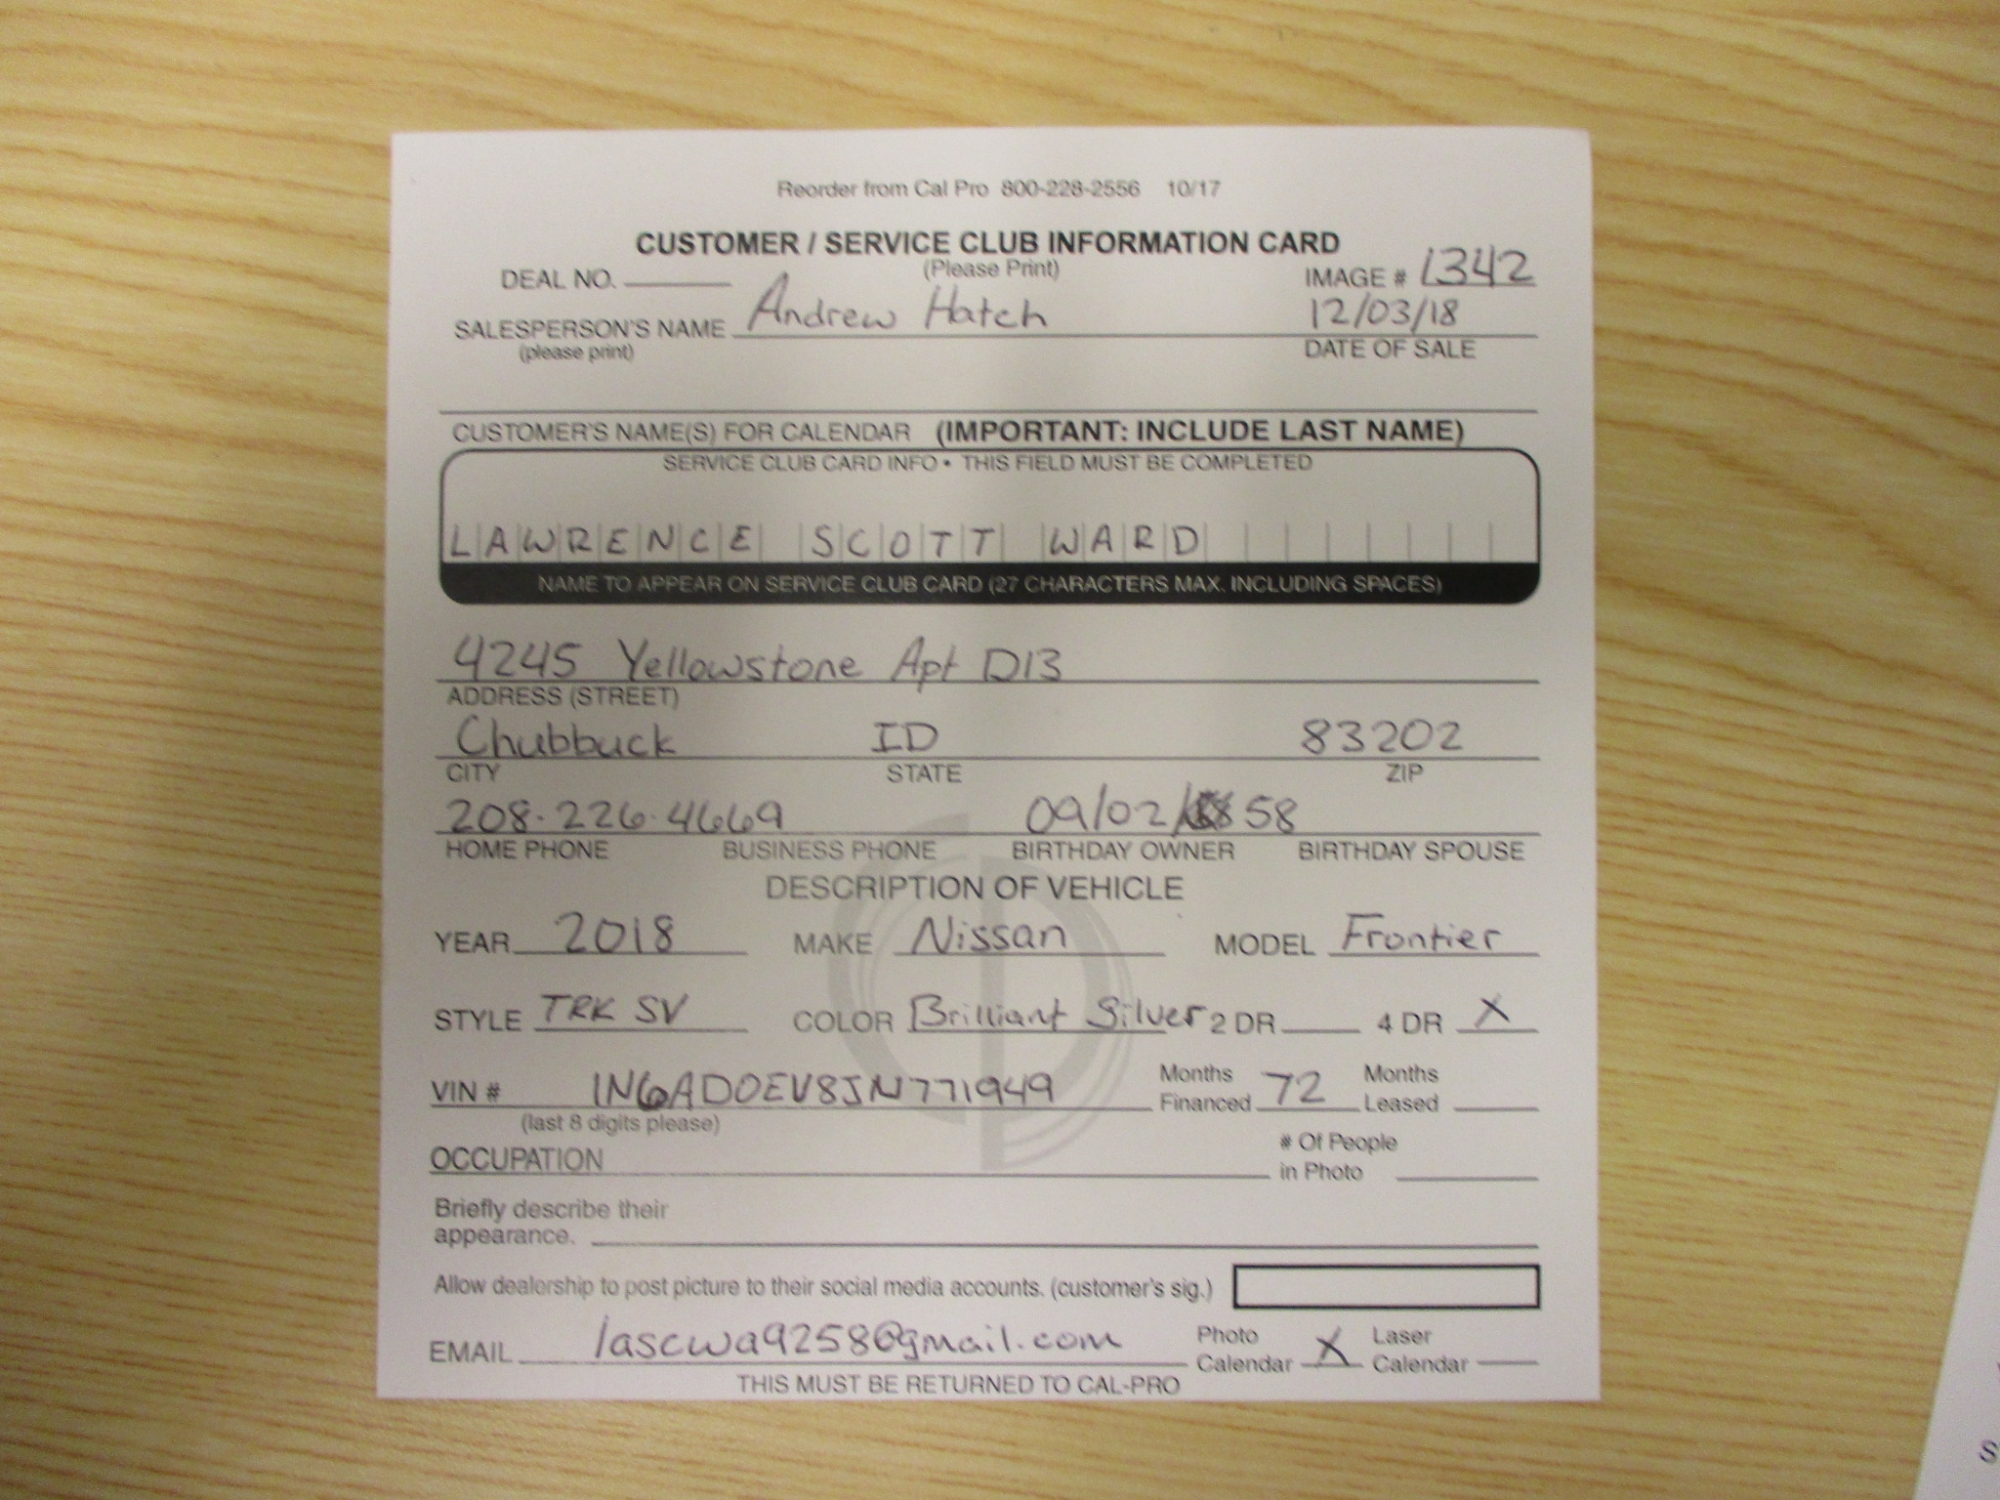 Reorder from Cal Pro 800-228-2556 10/17
CUSTOMER / SERVICE CLUB INFORMATION CARD
(Please Print)
DEAL NO. IMAGE # 1342
SALESPERSON'S NAME Andrew Hatch 12/03/18
(please print) DATE OF SALE
CUSTOMER'S NAME(S) FOR CALENDAR (IMPORTANT: INCLUDE LAST NAME)
SERVICE CLUB CARD INFO • THIS FIELD MUST BE COMPLETED
LAWRENCE SCOTT WARD
NAME TO APPEAR ON SERVICE CLUB CARD (27 CHARACTERS MAX. INCLUDING SPACES)
4245 Yellowstone Apt D13
ADDRESS (STREET)
Chubbuck ID 83202
CITY STATE ZIP
208-226-4669 09/02/58
HOME PHONE BUSINESS PHONE BIRTHDAY OWNER BIRTHDAY SPOUSE
DESCRIPTION OF VEHICLE
YEAR 2018 MAKE Nissan MODEL Frontier
STYLE TRK SV COLOR Brilliant Silver 2 DR 4 DR X
VIN # 1N6AD0EV8JN771949 Months Financed 72 Months Leased
(last 8 digits please)
OCCUPATION # Of People in Photo
Briefly describe their
appearance.
Allow dealership to post picture to their social media accounts. (customer's sig.)
EMAIL lascwa9258@gmail.com Photo Calendar X Laser Calendar
THIS MUST BE RETURNED TO CAL-PRO